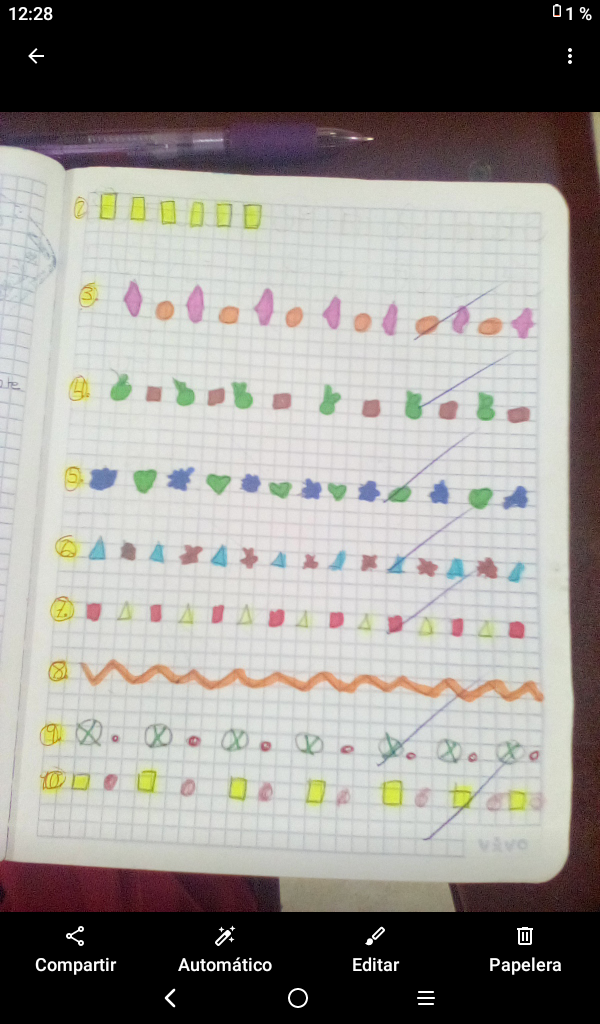 12:28
1 %
2.
3.
4.
5.
6.
7.
8.
9.
10.
Compartir
Automático
Editar
Papelera